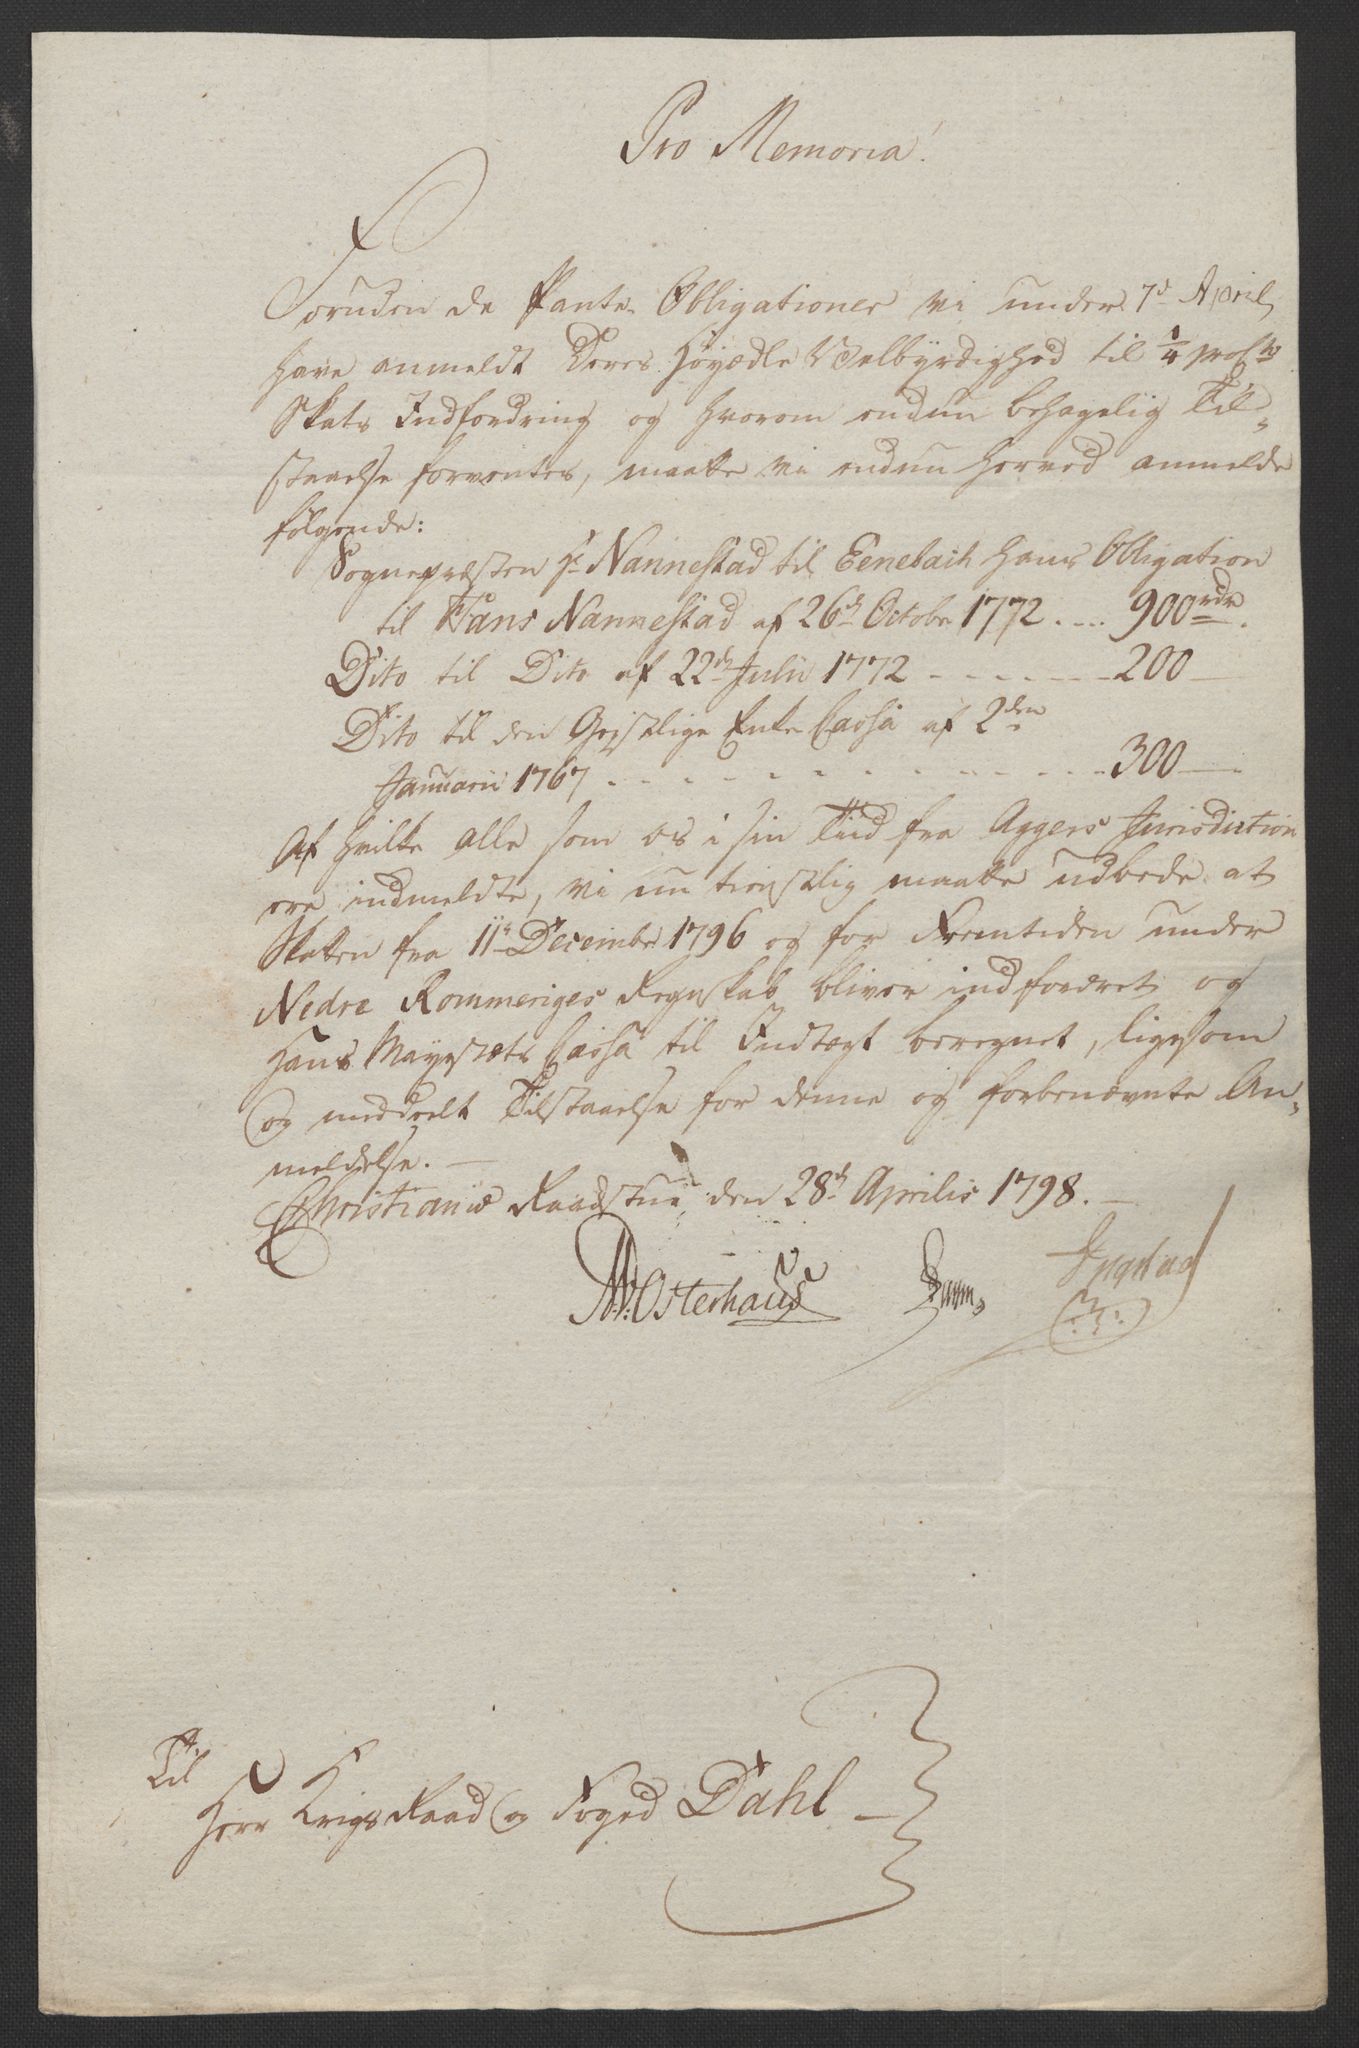 Pro Memoria!
Foruden de Pante Obligationer vi under 7de April
have anmeldt Deres Høyædle Velbyrdighed til 1/4 proCto
Skats Indfordring og hvorom endnu behagelig Til-
staaelse forventes, maatte vi endnu herved anmelde
følgende:
Sognepræsten Hr Nannestad til Eenebach hans Obligation
til Hans Nannestad af 26de Octobr 1772 .... 900 rdr.
Dito til Dito af 22de Julii 1772 - - - - - - 200 —
Dito til den Gejstlige Enke Cassa af 2den
Januarii 1767 - - - - - - - - - - - - 300 —
Af hvilke alle som os i sin Tiid fra Aggers Jurisdiction
ere indmeldte, vi nu tienstlig maatte udbede at
Skatten fra 11te Decembr 1796 og for Fremtiden under
Nedre Rommeriges Regnskab bliver indfordret og
Hans Mayestæts Cassa til Indtægt beregnet, ligesom
og meddeelt Tilstaaelse for denne og forbenævnte An-
meldelse. —
Christianiæ Raadstue den 28de Aprilis 1798. —
Osterhaus
Til
Herr Krigs Raad og Foged Dahl —